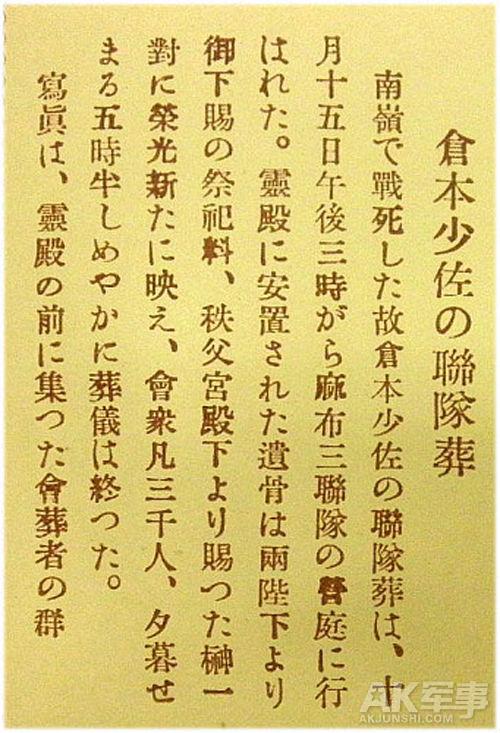 倉本少佐の聯隊葬
南嶺で戰死した故倉本少佐の聯隊葬は、十
月十五日午後三時がら麻布三聯隊の營庭に行
はれた。靈殿に安置された遺骨は兩陛下より
御下賜の祭祀料、秩父宮殿下より賜つた榊一
對に榮光新たに映え、會衆凡三千人、夕暮せ
まる五時半しめやかに葬儀は終つた。
寫眞は、靈殿の前に集つた會葬者の群
AK军事
AKJUNSHI.COM